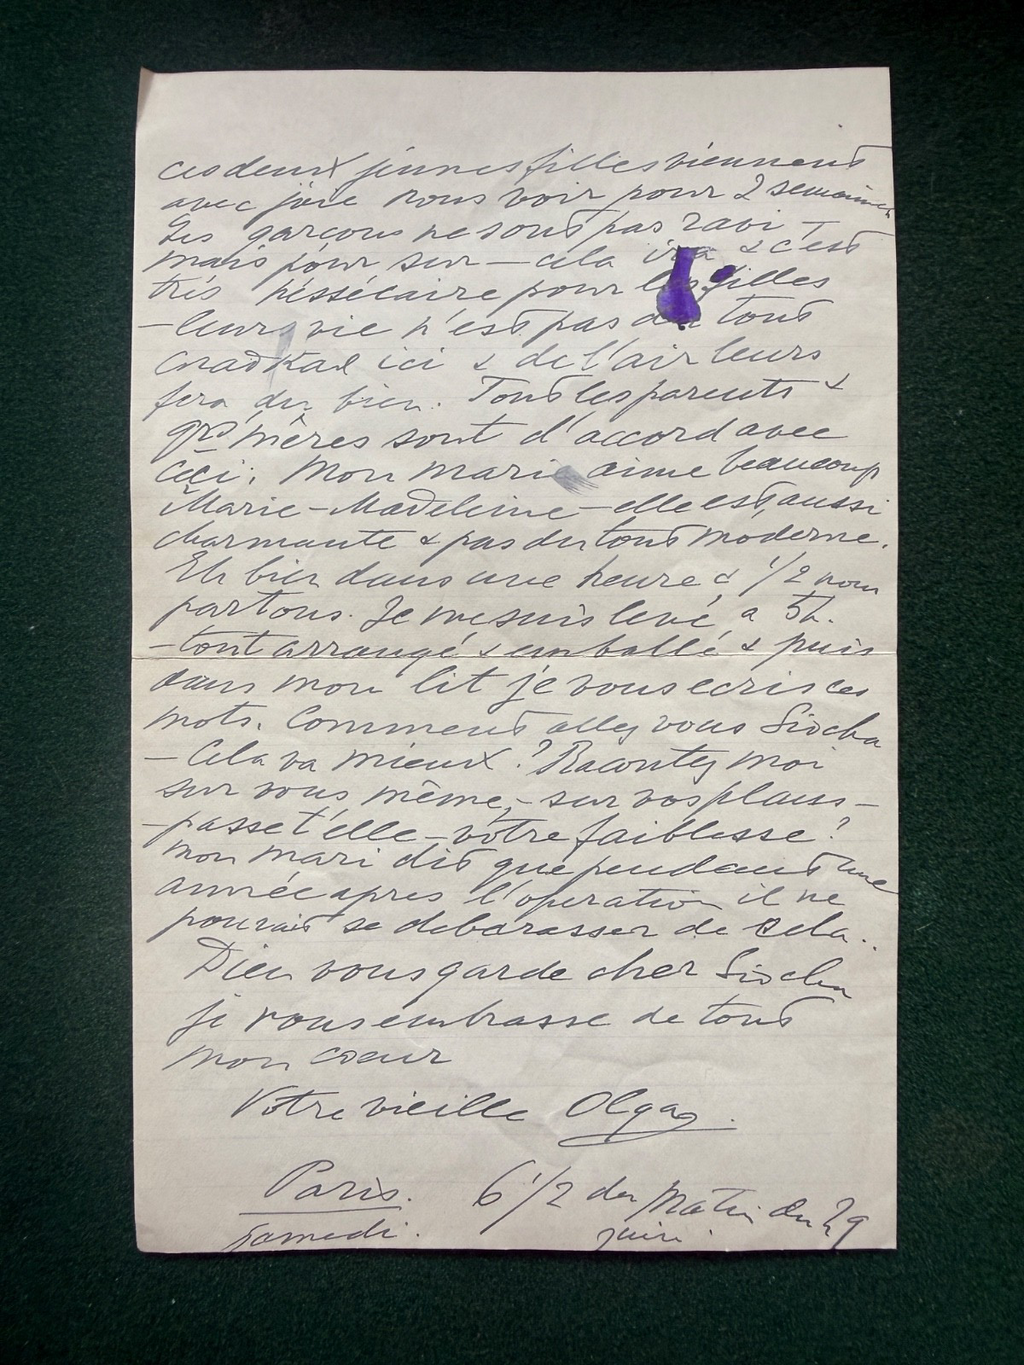 ces deux jeunes filles viennent
avec joie nous voir pour 2 semaines
Les garçons ne sont pas ravi —
mais pour sur — cela ira & c'est
trés néssécaire pour les filles
— leurs vie n'est pas du tout
ici & de l'air leurs
fera du bien. Tout les parents &
grds mères sont d'accord avec
ceci. Mon mari aime beaucoup
Marie-Madeleine — elle est aussi
charmante & pas du tout moderne.
Eh bien dans une heure & 1/2 nous
partons. Je me suis levé a 5h.
— tout arrangé & emballé & puis
dans mon lit je vous ecris ces
mots. Comment allez vous Siocha
— Cela va mieux? Racontez moi
sur vous même, — sur vos plans —
— passe t'elle — vôtre faiblesse?
mon mari dit que pendant une
année apres l'operation il ne
pouvait se debarasser de cela..
Dieu vous garde cher Siocha
je vous embrasse de tout
mon coeur
Votre vieille Olga.
Paris. 6 1/2 du Matin du 29
samedi. juin.